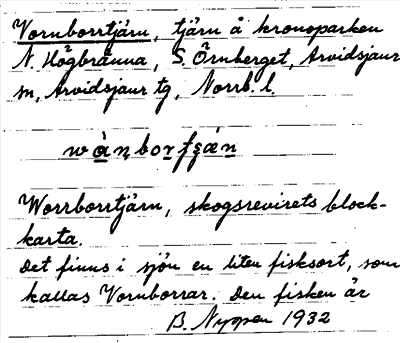 Vornborrtjärn, tjärn å kronoparken
N. Högbränna, S. Örnberget, Arvidsjaur
sn, Arvidsjaur tg, Norrb. l.
Worrborrtjärn, skogsrevirets block-
karta.
Det finns i sjön en liten fisksort, som
kallas Vornborrar. Den fisken är
B. Nyman 1932